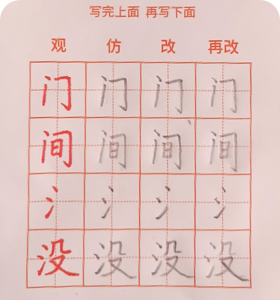 写完上面 再写下面
观 仿 改 再改
门 门 门 门
间 间 间 间
氵 氵 氵 氵
没 没 没 没